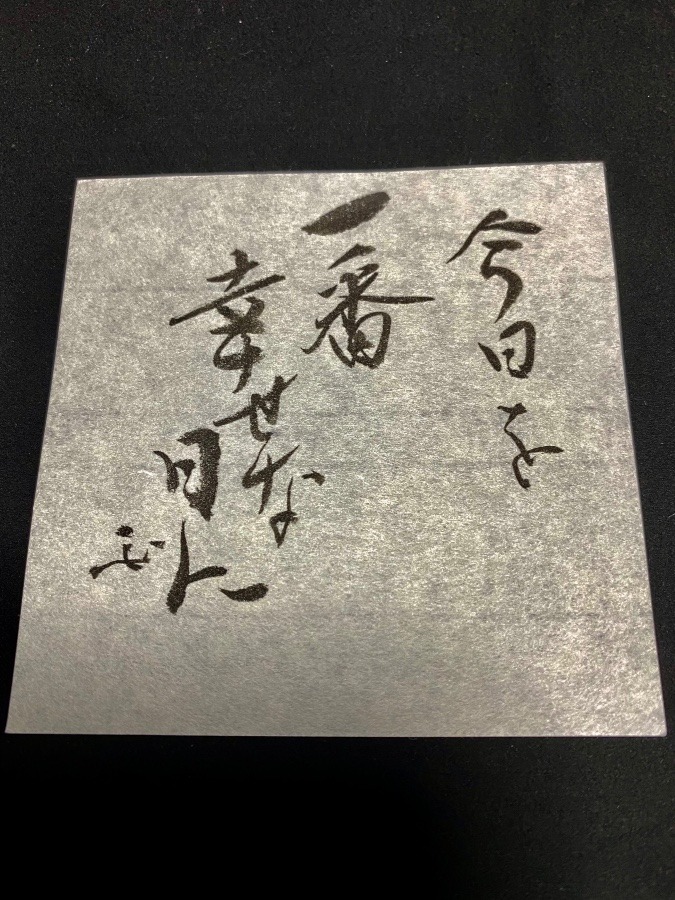 今日を
一番
幸せな
日に